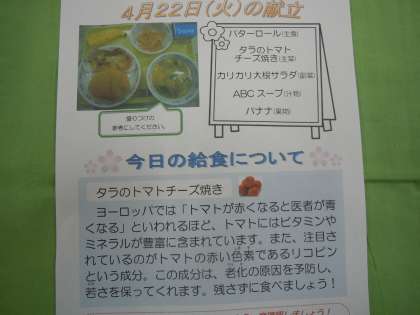 4月22日(火)の献立
バターロール(主食)
タラのトマト
チーズ焼き(主菜)
カリカリ大根サラダ(副菜)
ABCスープ(汁物)
バナナ(果物)
盛りつけの
参考にしてください。
今日の給食について
タラのトマトチーズ焼き
ヨーロッパでは「トマトが赤くなると医者が青
くなる」といわれるほど、トマトにはビタミンや
ミネラルが豊富に含まれています。また、注目さ
れているのがトマトの赤い色素であるリコピン
という成分。この成分は、老化の原因を予防し、
若さを保ってくれます。残さずに食べましょう！